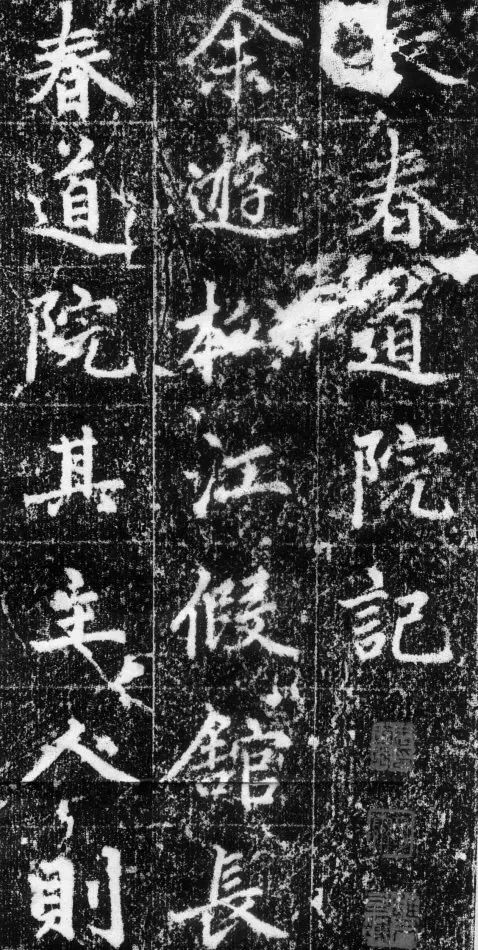 長春道院記
余遊松江假舘長
春道院其主人則